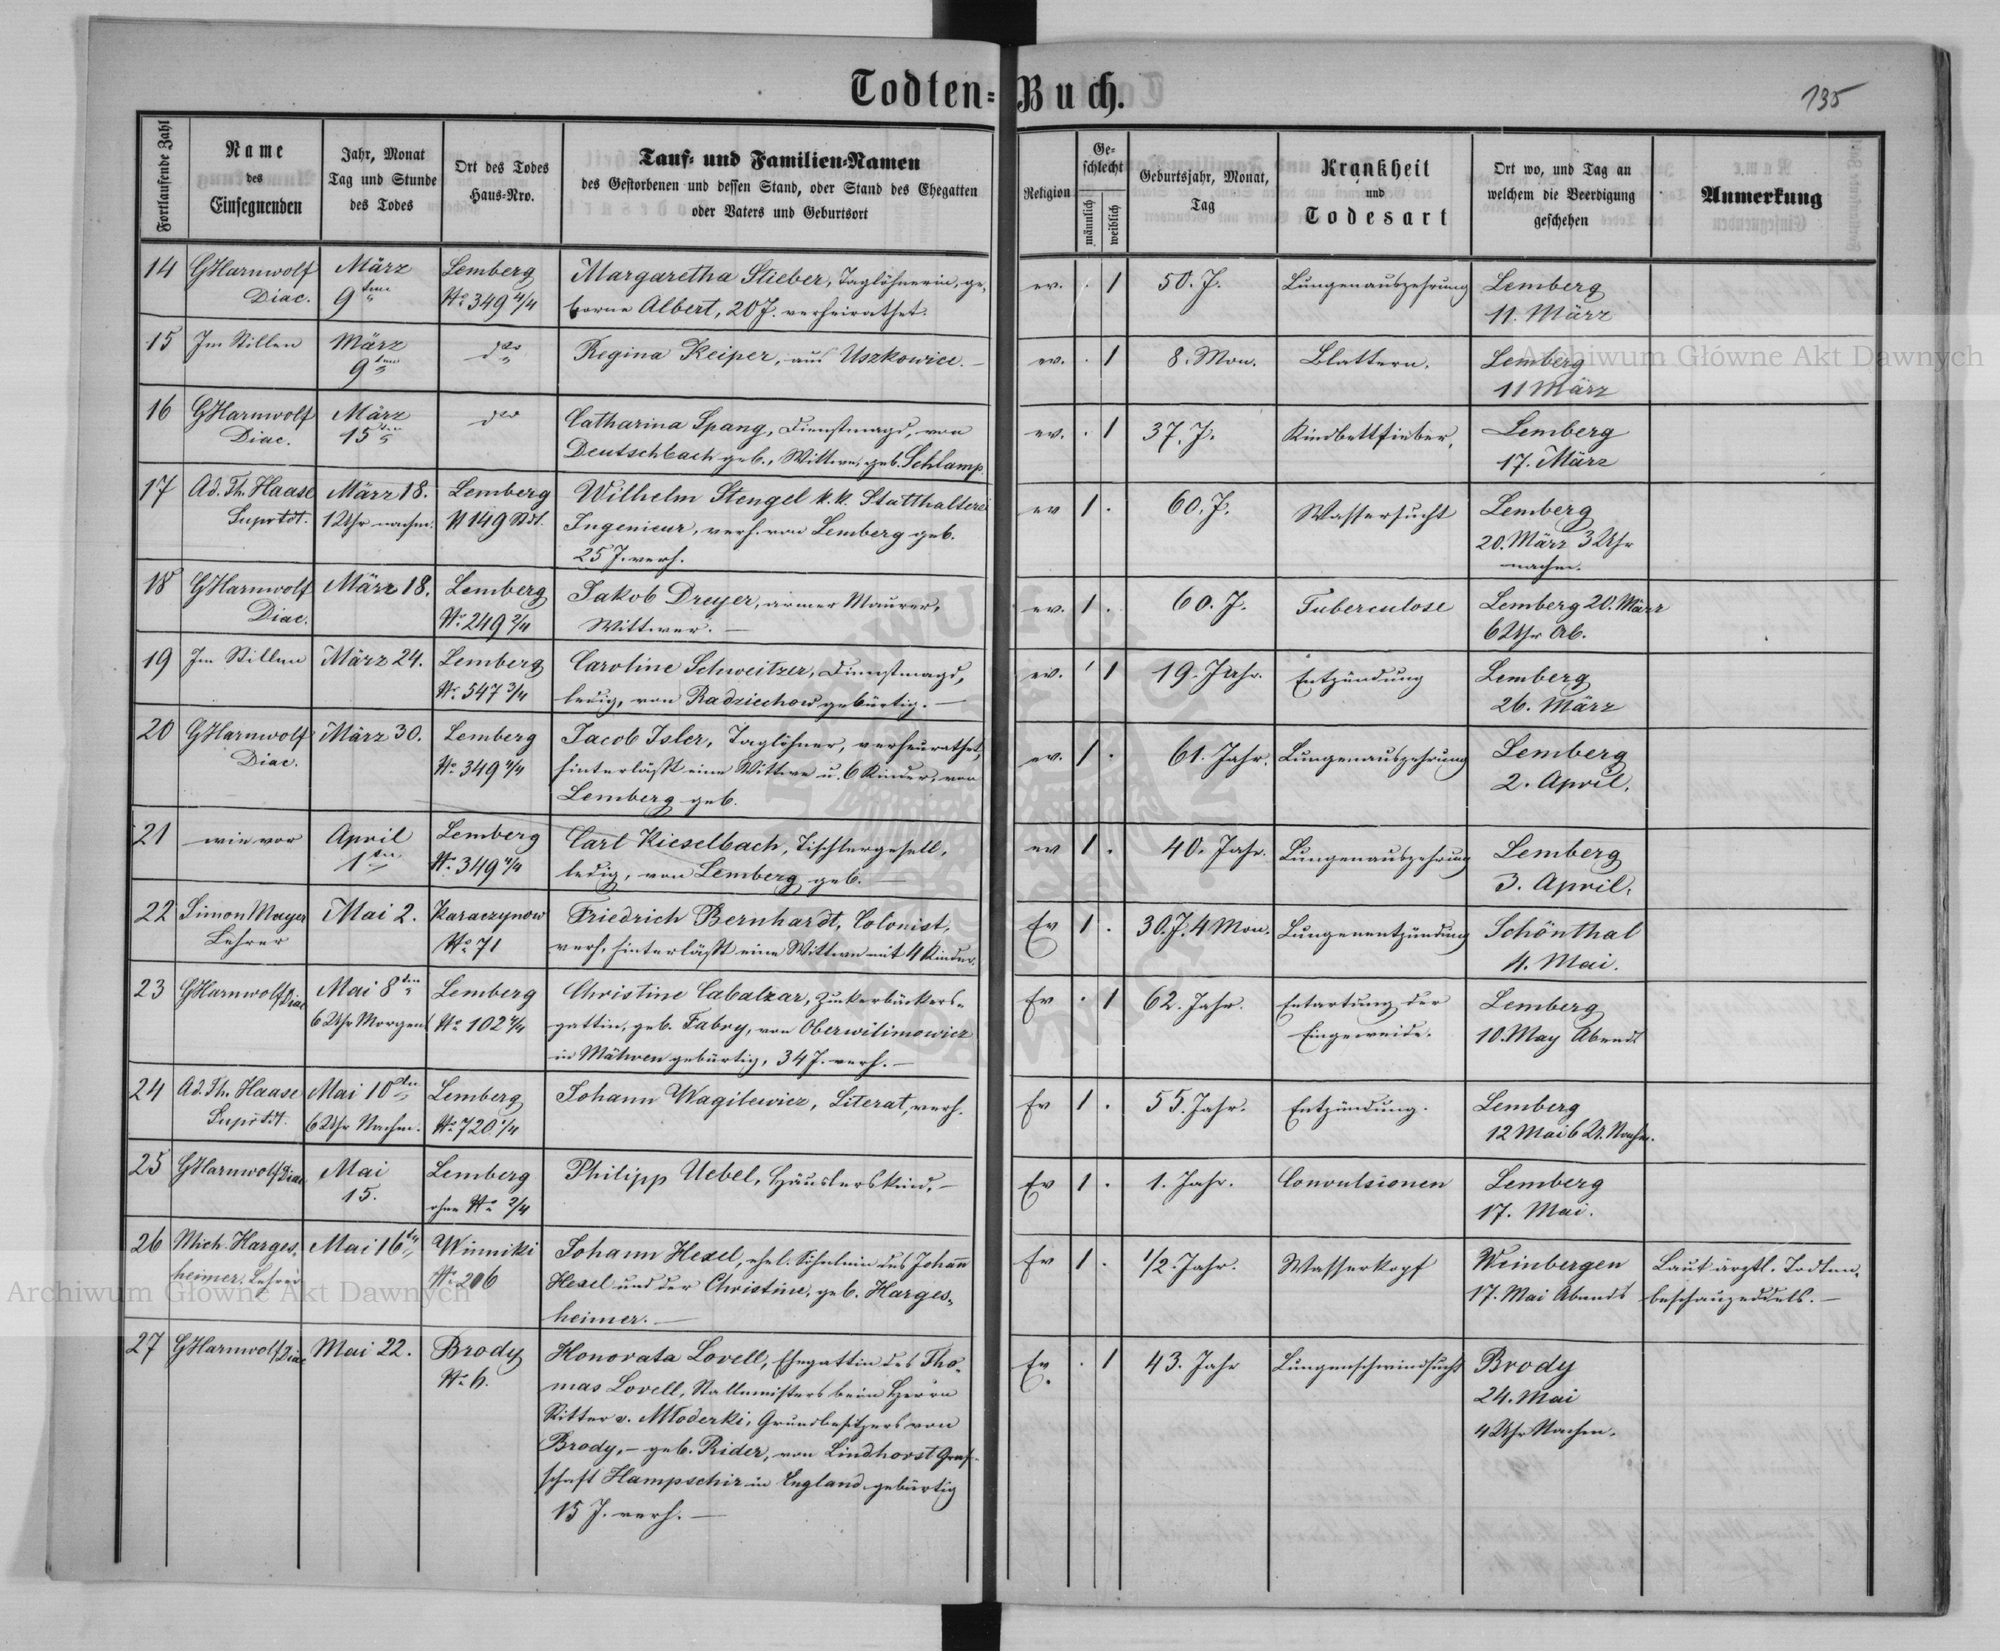 Todten-Buch.
135
Fortlaufende Zahl
Name
des
Einsegnenden
Jahr, Monat
Tag und Stunde
des Todes
Ort des Todes
Haus-Nro.
Tauf- und Familien-Namen
des Gestorbenen und dessen Stand, oder Stand des Ehegatten
oder Vaters und Geburtsort
Religion
Ge-
schlecht
männlich
weiblich
Geburtsjahr, Monat,
Tag
Krankheit
und
Todesart
Ort wo, und Tag an
welchem die Beerdigung
geschehen
Anmerkung
14 GHarnwolf März Lemberg Margaretha Stieber, Taglöhnerin, ge- ev. . 1 50. J. Lungenauszehrung Lemberg
Diac. 9ten No 349 4/4 borne Albert, 20 J. verheirathet. 11. März
15 Im Stillen März dto Regina Keiper, aus Uszkowice. – ev. . 1 8. Mon. Blattern. Lemberg
9ten 11 März
16 GHarnwolf März dto Catharina Spang, Dienstmagd, von ev. . 1 37. J. Kindbettfieber. Lemberg
Diac. 15ten Deutschbach geb., Wittwe, geb. Schlamp. 17. März
17 Ad. Th. Haase März 18. Lemberg Wilhelm Stengel k. k. Statthalterei ev 1 . 60. J. Wassersucht Lemberg
Suprtdt. 1 Uhr nachm. N 149 Stdt. Ingenieur, verh. von Lemberg geb. 20. März 3 Uhr
25 J. verh. nachm.
18 GHarnwolf März 18. Lemberg Jakob Dreyer, armer Maurer, ev. 1 . 60. J. Tuberculose Lemberg 20. März
Diac. No 249 2/4 Wittwer. – 6 Uhr Ab.
19 Im Stillen März 24. Lemberg Caroline Schweitzer, Dienstmagd, ev. . 1 19. Jahr. Entzündung Lemberg
No 547 3/4 ledig, von Radziechow gebürtig. – 26. März
20 GHarnwolf März 30. Lemberg Jacob Isler, Taglöhner, verheurathet, ev. 1 . 61. Jahr. Lungenauszehrung Lemberg
Diac. No 349 4/4 hinterläßt eine Wittwe u. 6 Kinder, von 2. April.
Lemberg geb.
21 wie vor April Lemberg Carl Kieselbach, Tischlergesell, ev 1 . 40. Jahr. Lungenauszehrung Lemberg
1ten No 349 4/4 ledig, von Lemberg geb. – 3. April.
22 Simon Mayer Mai 2. Karaczynow Friedrich Bernhardt, Colonist, Ev 1 . 30. J. 4 Mon. Lungenentzündung Schönthal
Lehrer No 71 verh. hinterläßt eine Wittwe mit 4 Kinder. 4. Mai.
23 GHarnwolf Diac Mai 8ten Lemberg Christine Cabalzar, Zuckerbäckers- Ev . 1 62. Jahr. Entartung der Lemberg
6 Uhr Morgens No 102 4/4 gattin, geb. Fabry, von Oberwilimowicz Eingeweide. 10. May Abends
in Mähren gebürtig, 34 J. verh. –
24 Ad. Th. Haase Mai 10ten Lemberg Johann Wagilewicz, Literat, verh. Ev 1 . 55. Jahr. Entzündung. Lemberg
Suprtdt. 6 Uhr Nachm. No 720 1/4 12 Mai 6 U. Nachm.
25 GHarnwolf Diac Mai Lemberg Philipp Uebel, Häuslerskind. – Ev 1 . 1. Jahr. Convulsionen Lemberg
15. ohne No 2/4 17. Mai.
26 Mich. Harges- Mai 16ten Winniki Johann Hexel, ehel. Söhnlein des Johann Ev 1 . 1/2 Jahr. Wasserkopf Weinbergen Laut ärztl. Todten-
heimer, Lehrer No 206 Hexel und der Christine, geb. Harges- 17. Mai Abends beschauzeddels. –
heimer. –
27 GHarnwolf Diac Mai 22. Brody Honorata Lovell, Ehegattin des Tho- Ev. . 1 43. Jahr Lungenschwindsucht Brody
No 6. mas Lovell, Stallmeisters beim Herrn 24. Mai
Ritter v. Młoderki, Grundbesitzers von 4 Uhr Nachm.
Brody, – geb. Rider, von Lindhorst Graf-
schaft Hampschir in England gebürtig
15 J. verh. –
Archiwum Główne Akt Dawnych
Archiwum Główne Akt Dawnych